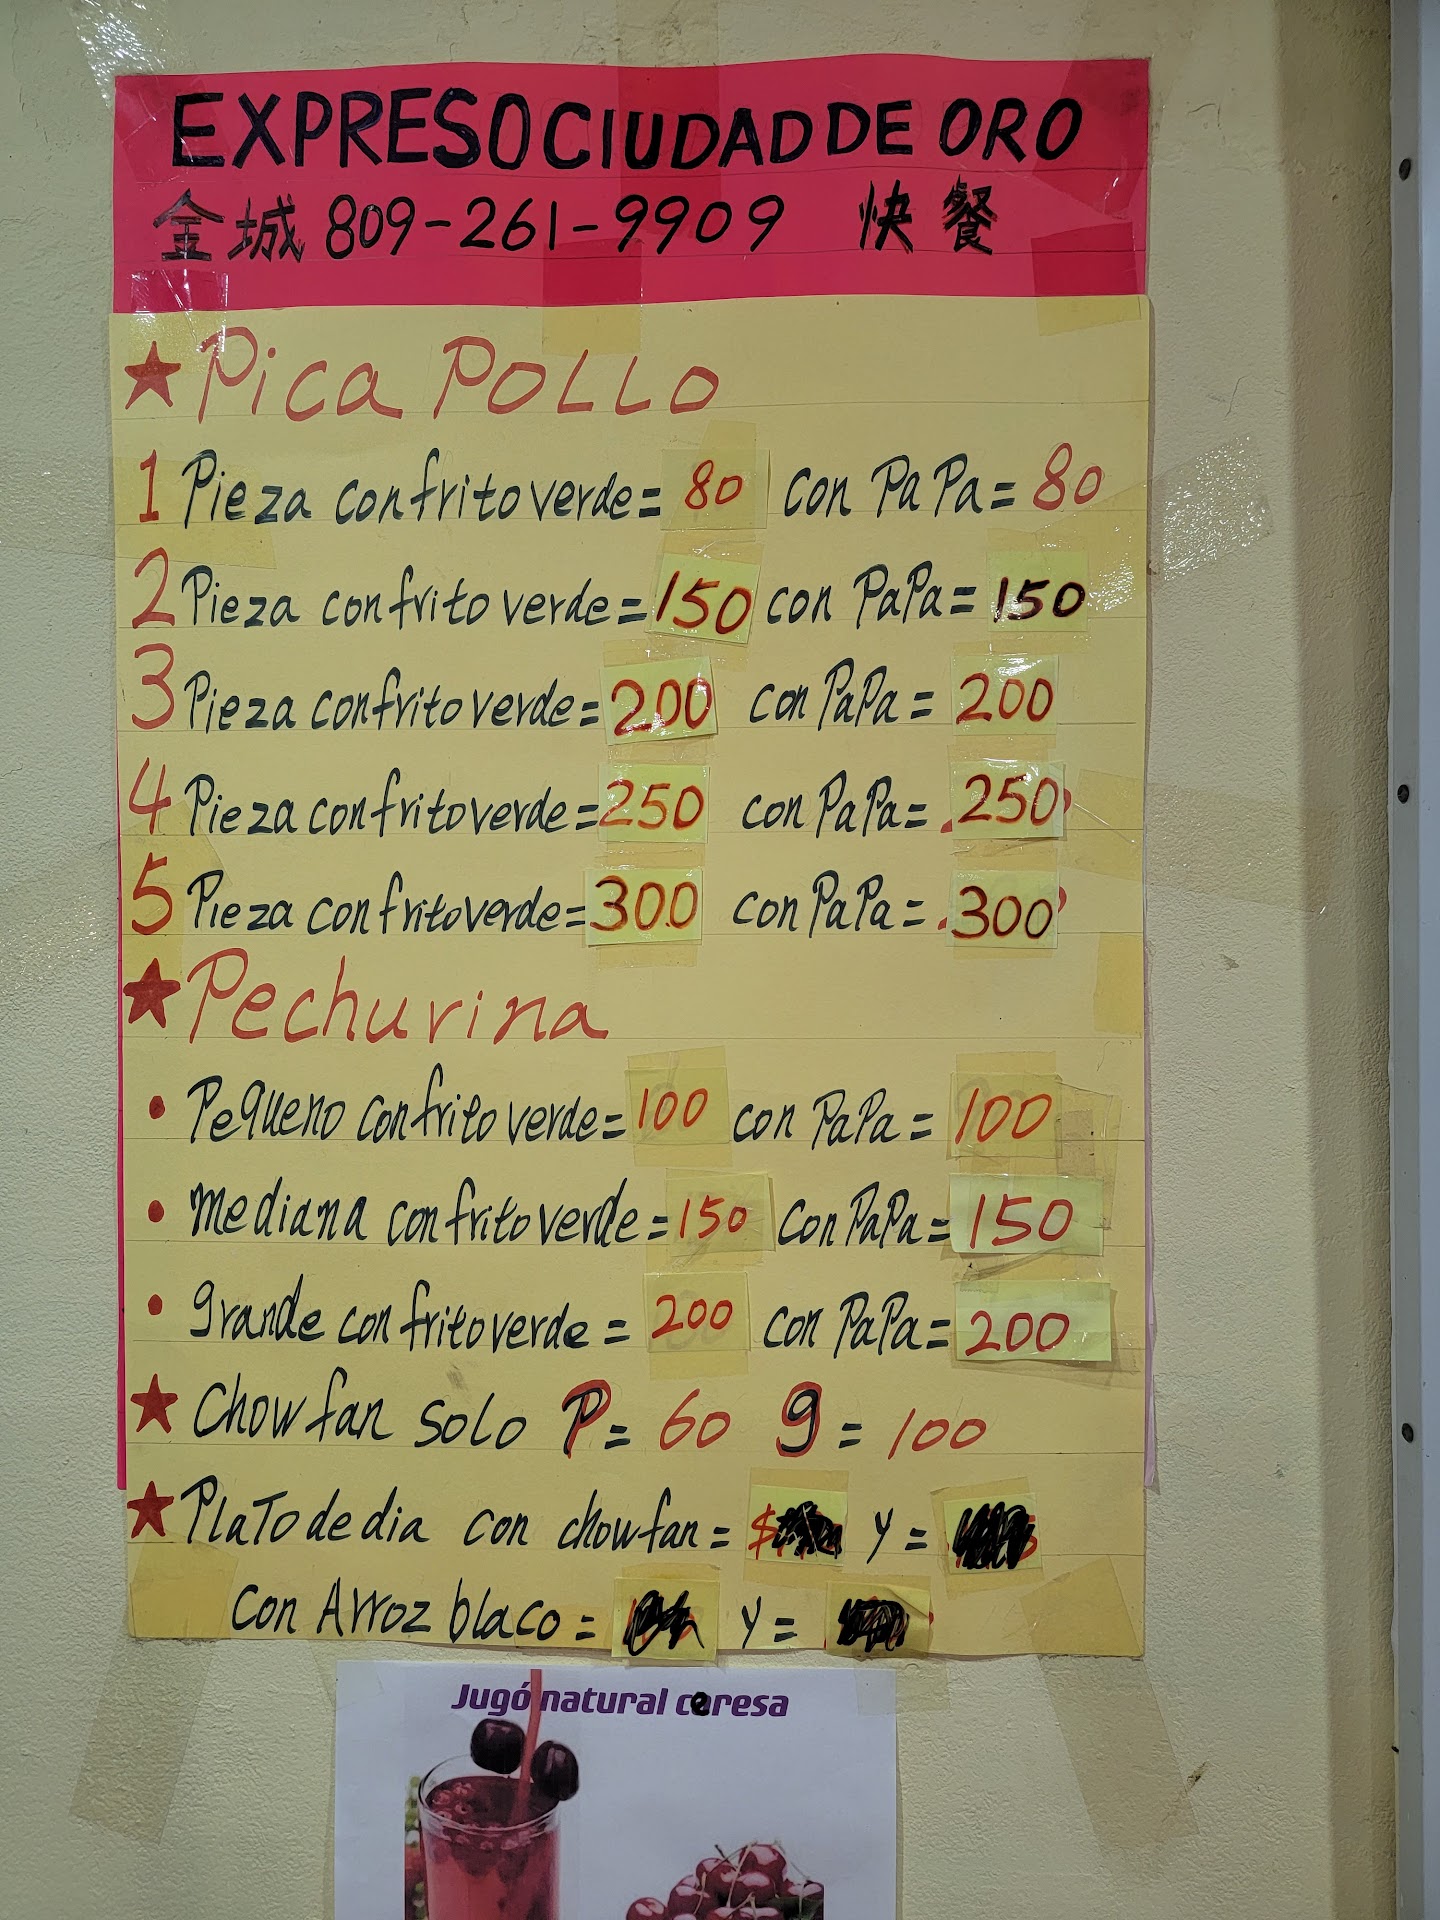 EXPRESO CIUDAD DE ORO
金城 809-261-9909 快餐
★ Pica POLLO
1 Pieza con frito verde = 80 con PaPa = 80
2 Pieza con frito verde = 150 con PaPa = 150
3 Pieza con frito verde = 200 con PaPa = 200
4 Pieza con frito verde = 250 con PaPa = 250
5 Pieza con frito verde = 300 con PaPa = 300
★ Pechurina
• Pequeno con frito verde = 100 con PaPa = 100
• mediana con frito verde = 150 con PaPa = 150
• grande con frito verde = 200 con PaPa = 200
★ Chow fan solo P = 60 g = 100
★ PlaTo de dia con chow fan = $ y =
con Arroz blaco = y =
Jugó natural ceresa